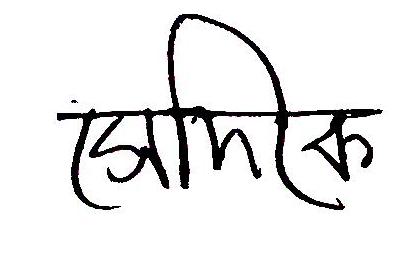 সেদিকে